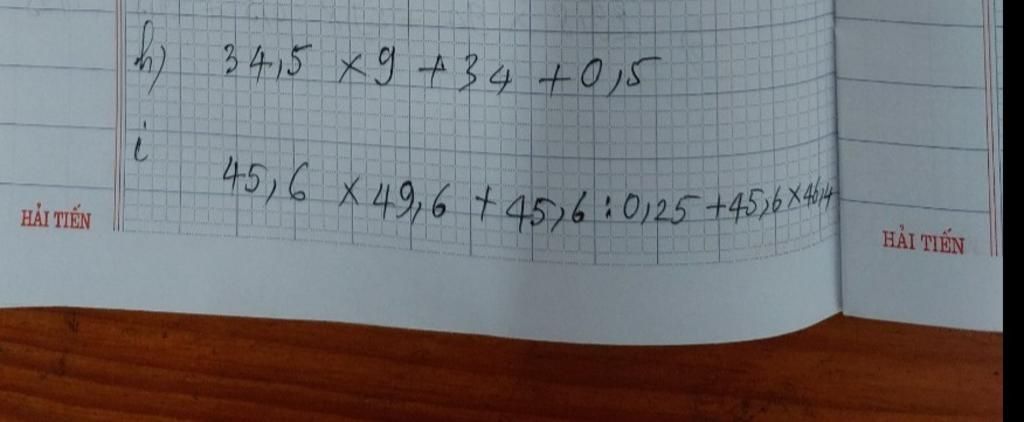 h) 34,5 × 9 + 34 + 0,5
i
45,6 × 49,6 + 45,6 : 0,25 + 45,6 × 46,4
HẢI TIẾN
HẢI TIẾN